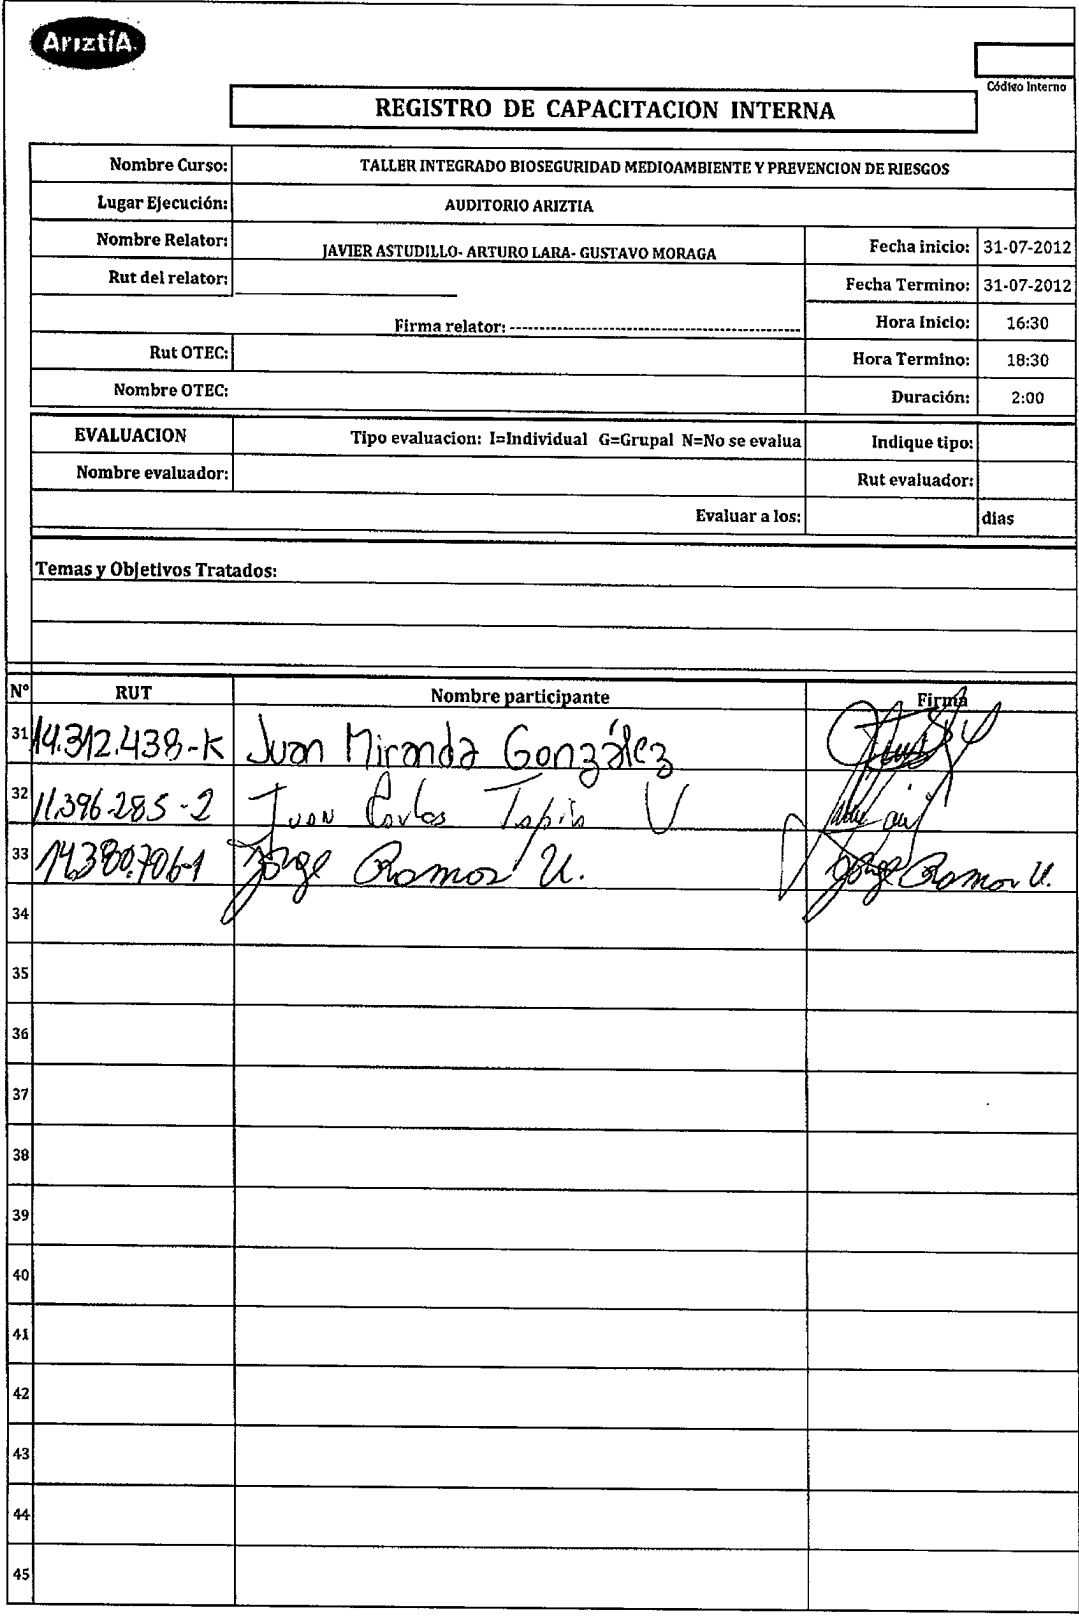 AriztíA
Código Interno
REGISTRO DE CAPACITACION INTERNA
Nombre Curso: TALLER INTEGRADO BIOSEGURIDAD MEDIOAMBIENTE Y PREVENCION DE RIESGOS
Lugar Ejecución: AUDITORIO ARIZTIA
Nombre Relator: JAVIER ASTUDILLO- ARTURO LARA- GUSTAVO MORAGA Fecha inicio: 31-07-2012
Rut del relator: Fecha Termino: 31-07-2012
Firma relator: Hora Inicio: 16:30
Rut OTEC: Hora Termino: 18:30
Nombre OTEC: Duración: 2:00
EVALUACION Tipo evaluacion: I=Individual G=Grupal N=No se evalua Indique tipo:
Nombre evaluador: Rut evaluador:
Evaluar a los: dias
Temas y Objetivos Tratados:
N° RUT Nombre participante Firma
31 14.312.438-K Juan Miranda González
32 11.396.285-2 Juan Carlos Tapia V
33 14.380.706-1 Jorge Ramos U. Jorge Ramos U.
34
35
36
37
38
39
40
41
42
43
44
45